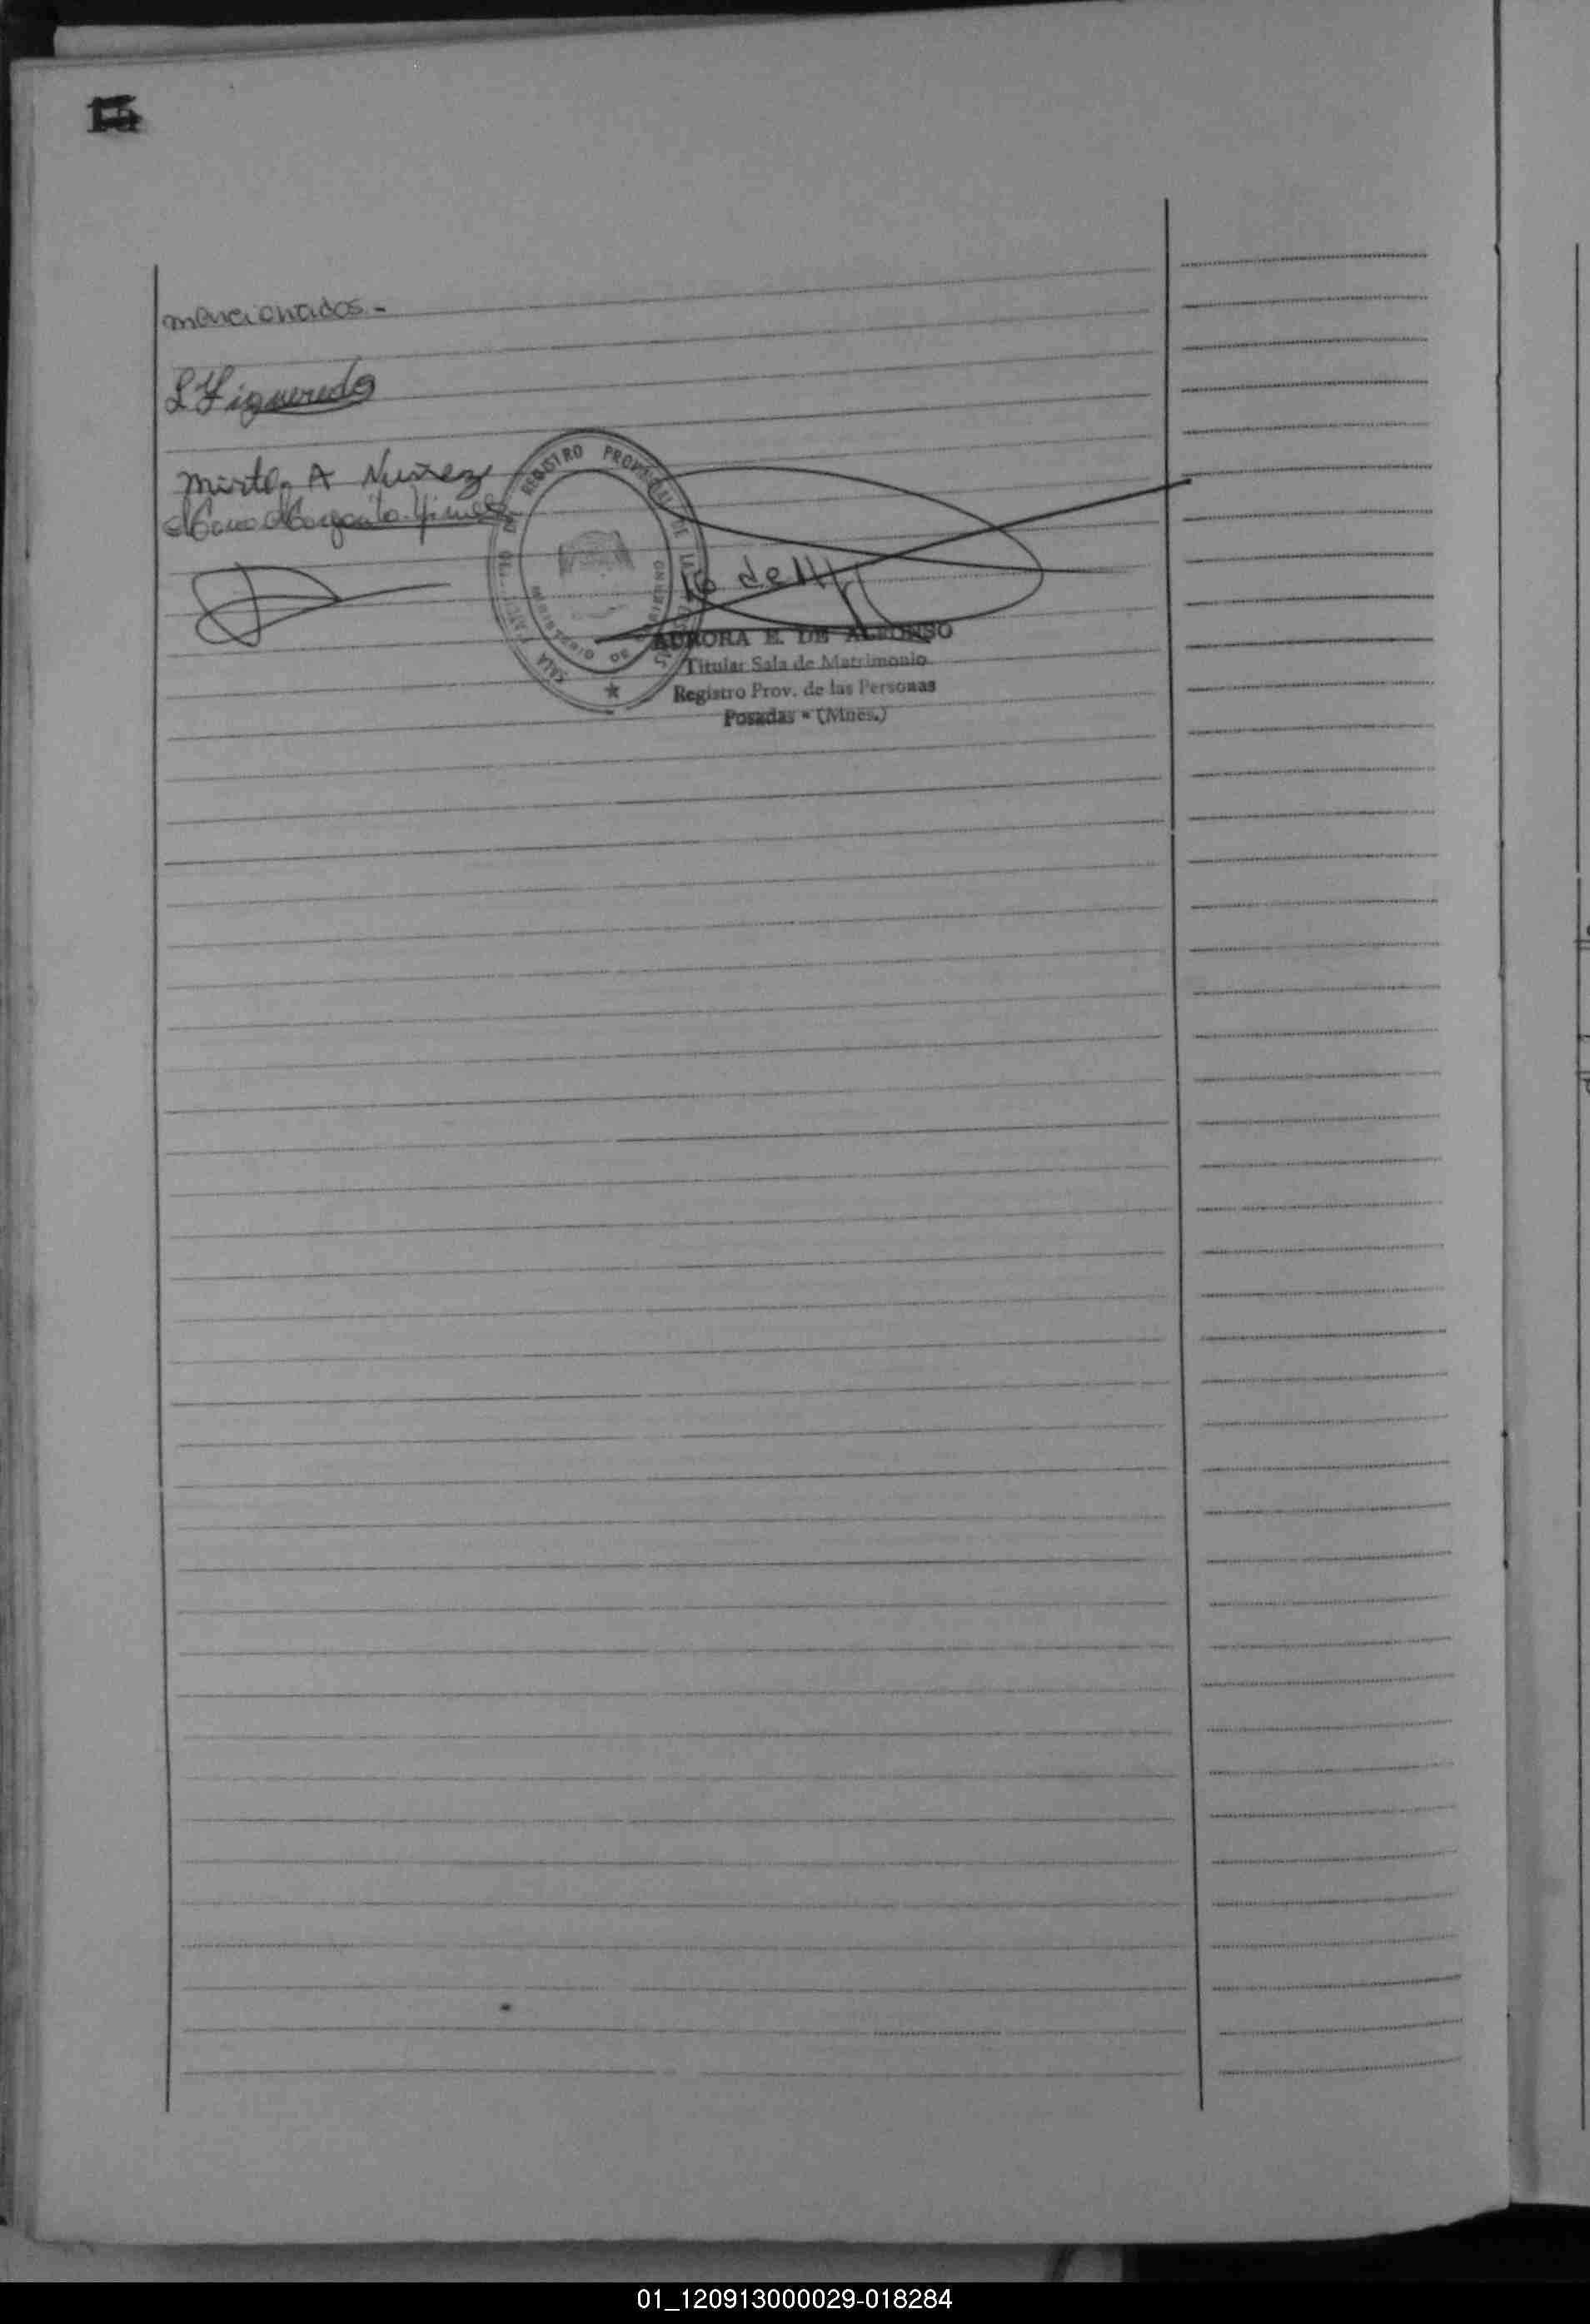 15
mencionados.-
L Figueredo
Mirta A Nuñez
Margarita
REGISTRO PROVINCIAL DE LAS PERSONAS
MINISTERIO DE GOBIERNO
AURORA E. DE ALFONSO
Titular Sala de Matrimonio
Registro Prov. de las Personas
Posadas - (Mnes.)
01_120913000029-018284